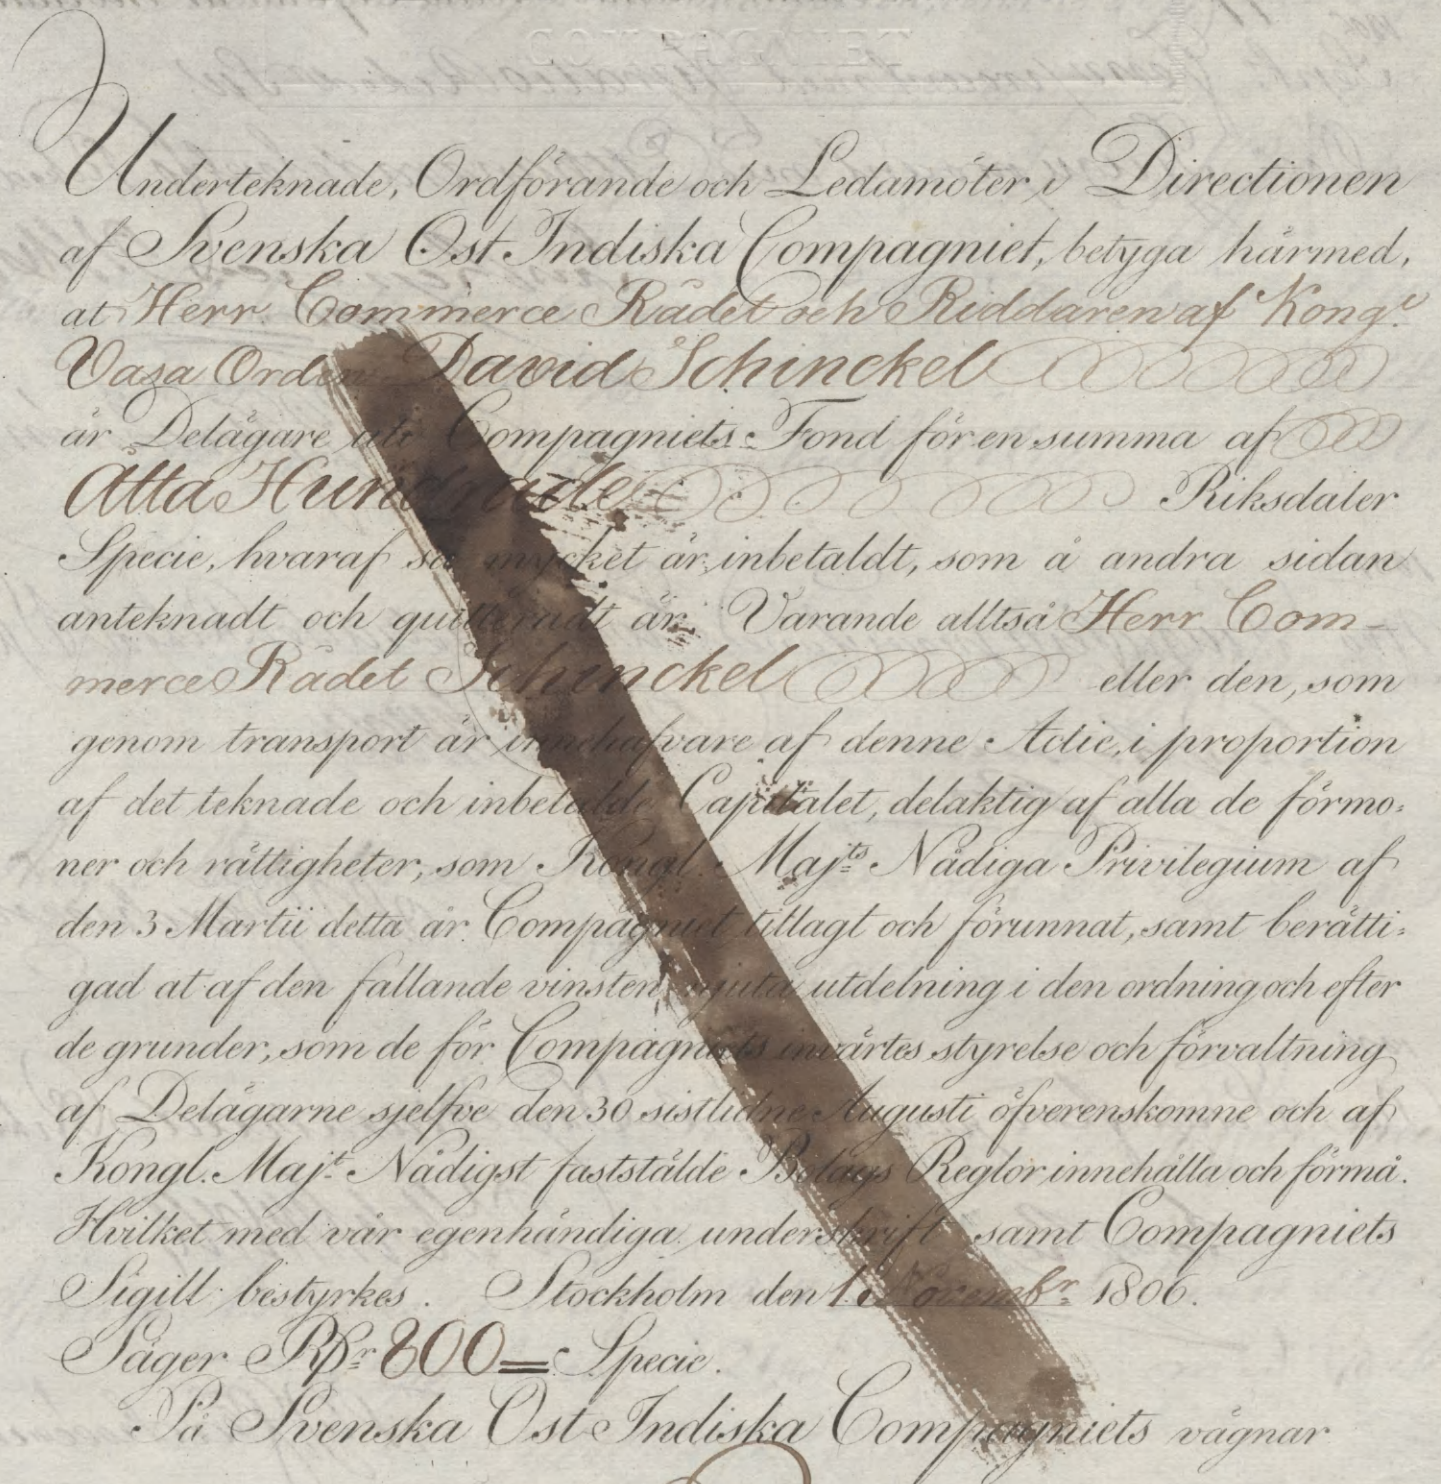 Underteknade, Ordförande och Ledamöter i Directionen
af Svenska Ost Indiska Compagniet, betyga härmed,
at Herr Commerce Rådet och Riddaren af Kongl.
Vasa Orden David Schinckel
är Delägare uti Compagniets Fond för en summa af
Åtta Hundrade Riksdaler
Specie, hvaraf så mycket är inbetaldt, som å andra sidan
anteknadt och quitteradt är. Varande alltså Herr Com-
merce Rådet Schinckel eller den, som
genom transport är innehafvare af denne Actie, i proportion
af det teknade och inbetalde Capitalet, delaktig af alla de förmo=
ner och rättigheter, som Kongl. Majts Nådiga Privilegium af
den 3 Martii detta år Compagniet tillagt och förunnat, samt berätti=
gad at af den fallande vinsten njuta utdelning i den ordning och efter
de grunder, som de för Compagniets invärtes styrelse och förvaltning
af Delägarne sjelfve den 30 sistlidne Augusti öfverenskomne och af
Kongl. Majt Nådigst faststälde Bolags Reglor innehålla och förmå.
Hvilket med vår egenhändiga underskrift samt Compagniets
Sigill bestyrkes. Stockholm den 1 Novembr 1806.
Säger RDr 800 = Specie.
På Svenska Ost Indiska Compagniets vägnar